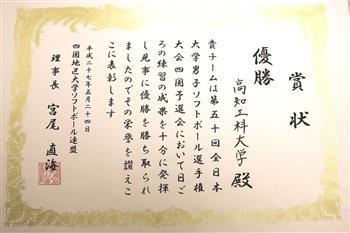 賞状
優勝
高知工科大学殿
貴チームは第五十回全日本
大学男子ソフトボール選手権
大会四国予選会において日ご
ろの練習の成果を十分に発揮
し見事に優勝を勝ち取られ
ましたのでその栄誉を讃えこ
こに表彰します
平成二十七年五月二十四日
四国地区大学ソフトボール連盟
理事長 宮尾直海